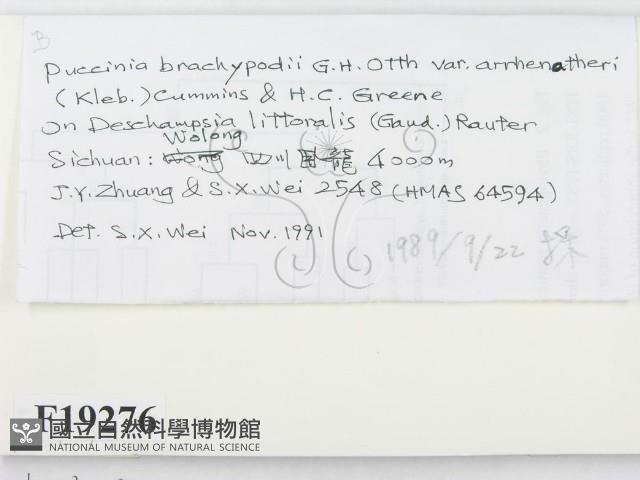 B
Puccinia brachypodii G.H. Otth var. arrhenatheri
(Kleb.) Cummins & H.C. Greene
on Deschampsia littoralis (Gaud.) Reuter
Wolong
Sichuan: Wong 四川 臥龍 4000m
J.Y. Zhuang & S.X. Wei 2548 (HMAS 64594)
Det. S.X. Wei Nov. 1991
1989/9/22 採
F19276
國立自然科學博物館
NATIONAL MUSEUM OF NATURAL SCIENCE